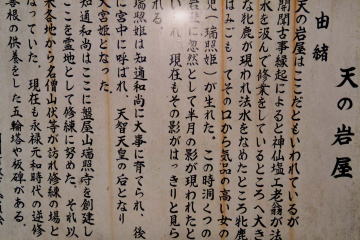 天の岩屋
由緒
天の岩屋はここだともいわれているが
開聞古事縁起によると神仙塩土老翁が法
水を汲んで修業をしているところへ大き
な牝鹿が現われ法水をなめたところ牝鹿
はみごもってその口から気品の高い女の
児(瑞照姫)が生れた。この時洞くつの
岩壁に忽然として半月の影が現われたと
いわれ、現在もその影がはっきりと見ら
れる。
瑞照姫は知通和尚に大事に育てられ、後
に宮中に呼ばれ 天智天皇の后となり
大宮姫となった。
知通和尚はここに盤屋山瑞照寺を創建し
ここを霊地として修練に努めた。それ以
来各地から名僧山伏等が訪れ修練の場と
なっていた。現在も永禄、元和時代の逆修
善根の供養をした五輪塔や板碑がある。